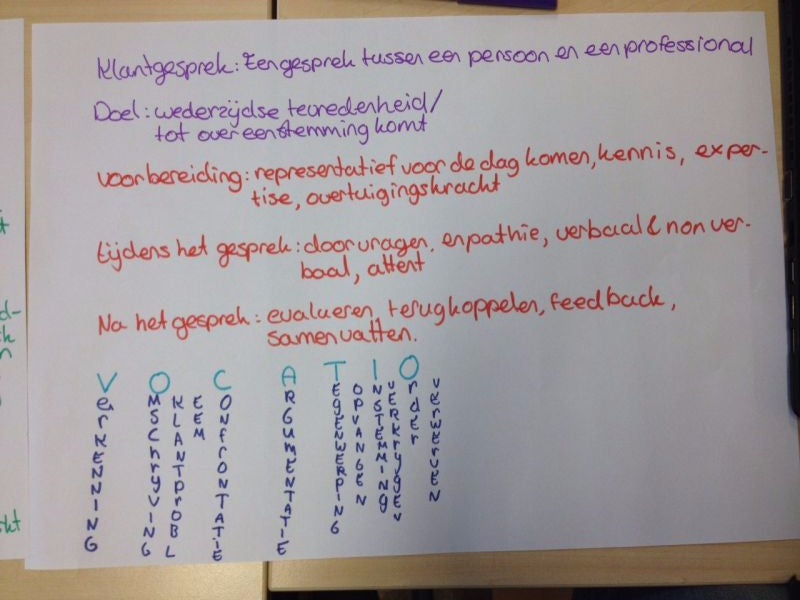 Klantgesprek: Een gesprek tussen een persoon en een professional
Doel: wederzijdse tevredenheid/
tot overeenstemming komt
voorbereiding: representatief voor de dag komen, kennis, exper-
tise, overtuigingskracht
tijdens het gesprek: doorvragen, enpathie, verbaal & non ver-
baal, attent
Na het gesprek: evalueren, terugkoppelen, feedback,
samenvatten.
V O C A T I O
VerKENNING
OMSChryVING KLANTPROBLEEM
CONfrONTATIE
ARGUMENTATIE
TEGENWERPING OPVANGEN
INSTEMMING VERKRYGEN
Order verwerven